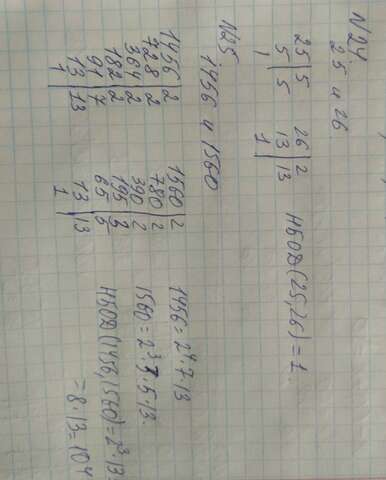 N24
25 и 26
25 | 5
5 | 5
1
26 | 2
13 | 13
1
НБОД(25,26)=1.
N25
1456 и 1560
1456 | 2
728 | 2
364 | 2
182 | 2
91 | 7
13 | 13
1
1560 | 2
780 | 2
390 | 2
195 | 3
65 | 5
13 | 13
1
1456=2⁴·7·13
1560=2³·3·5·13
НБОД(1456,1560)=2³·13
=8·13=104